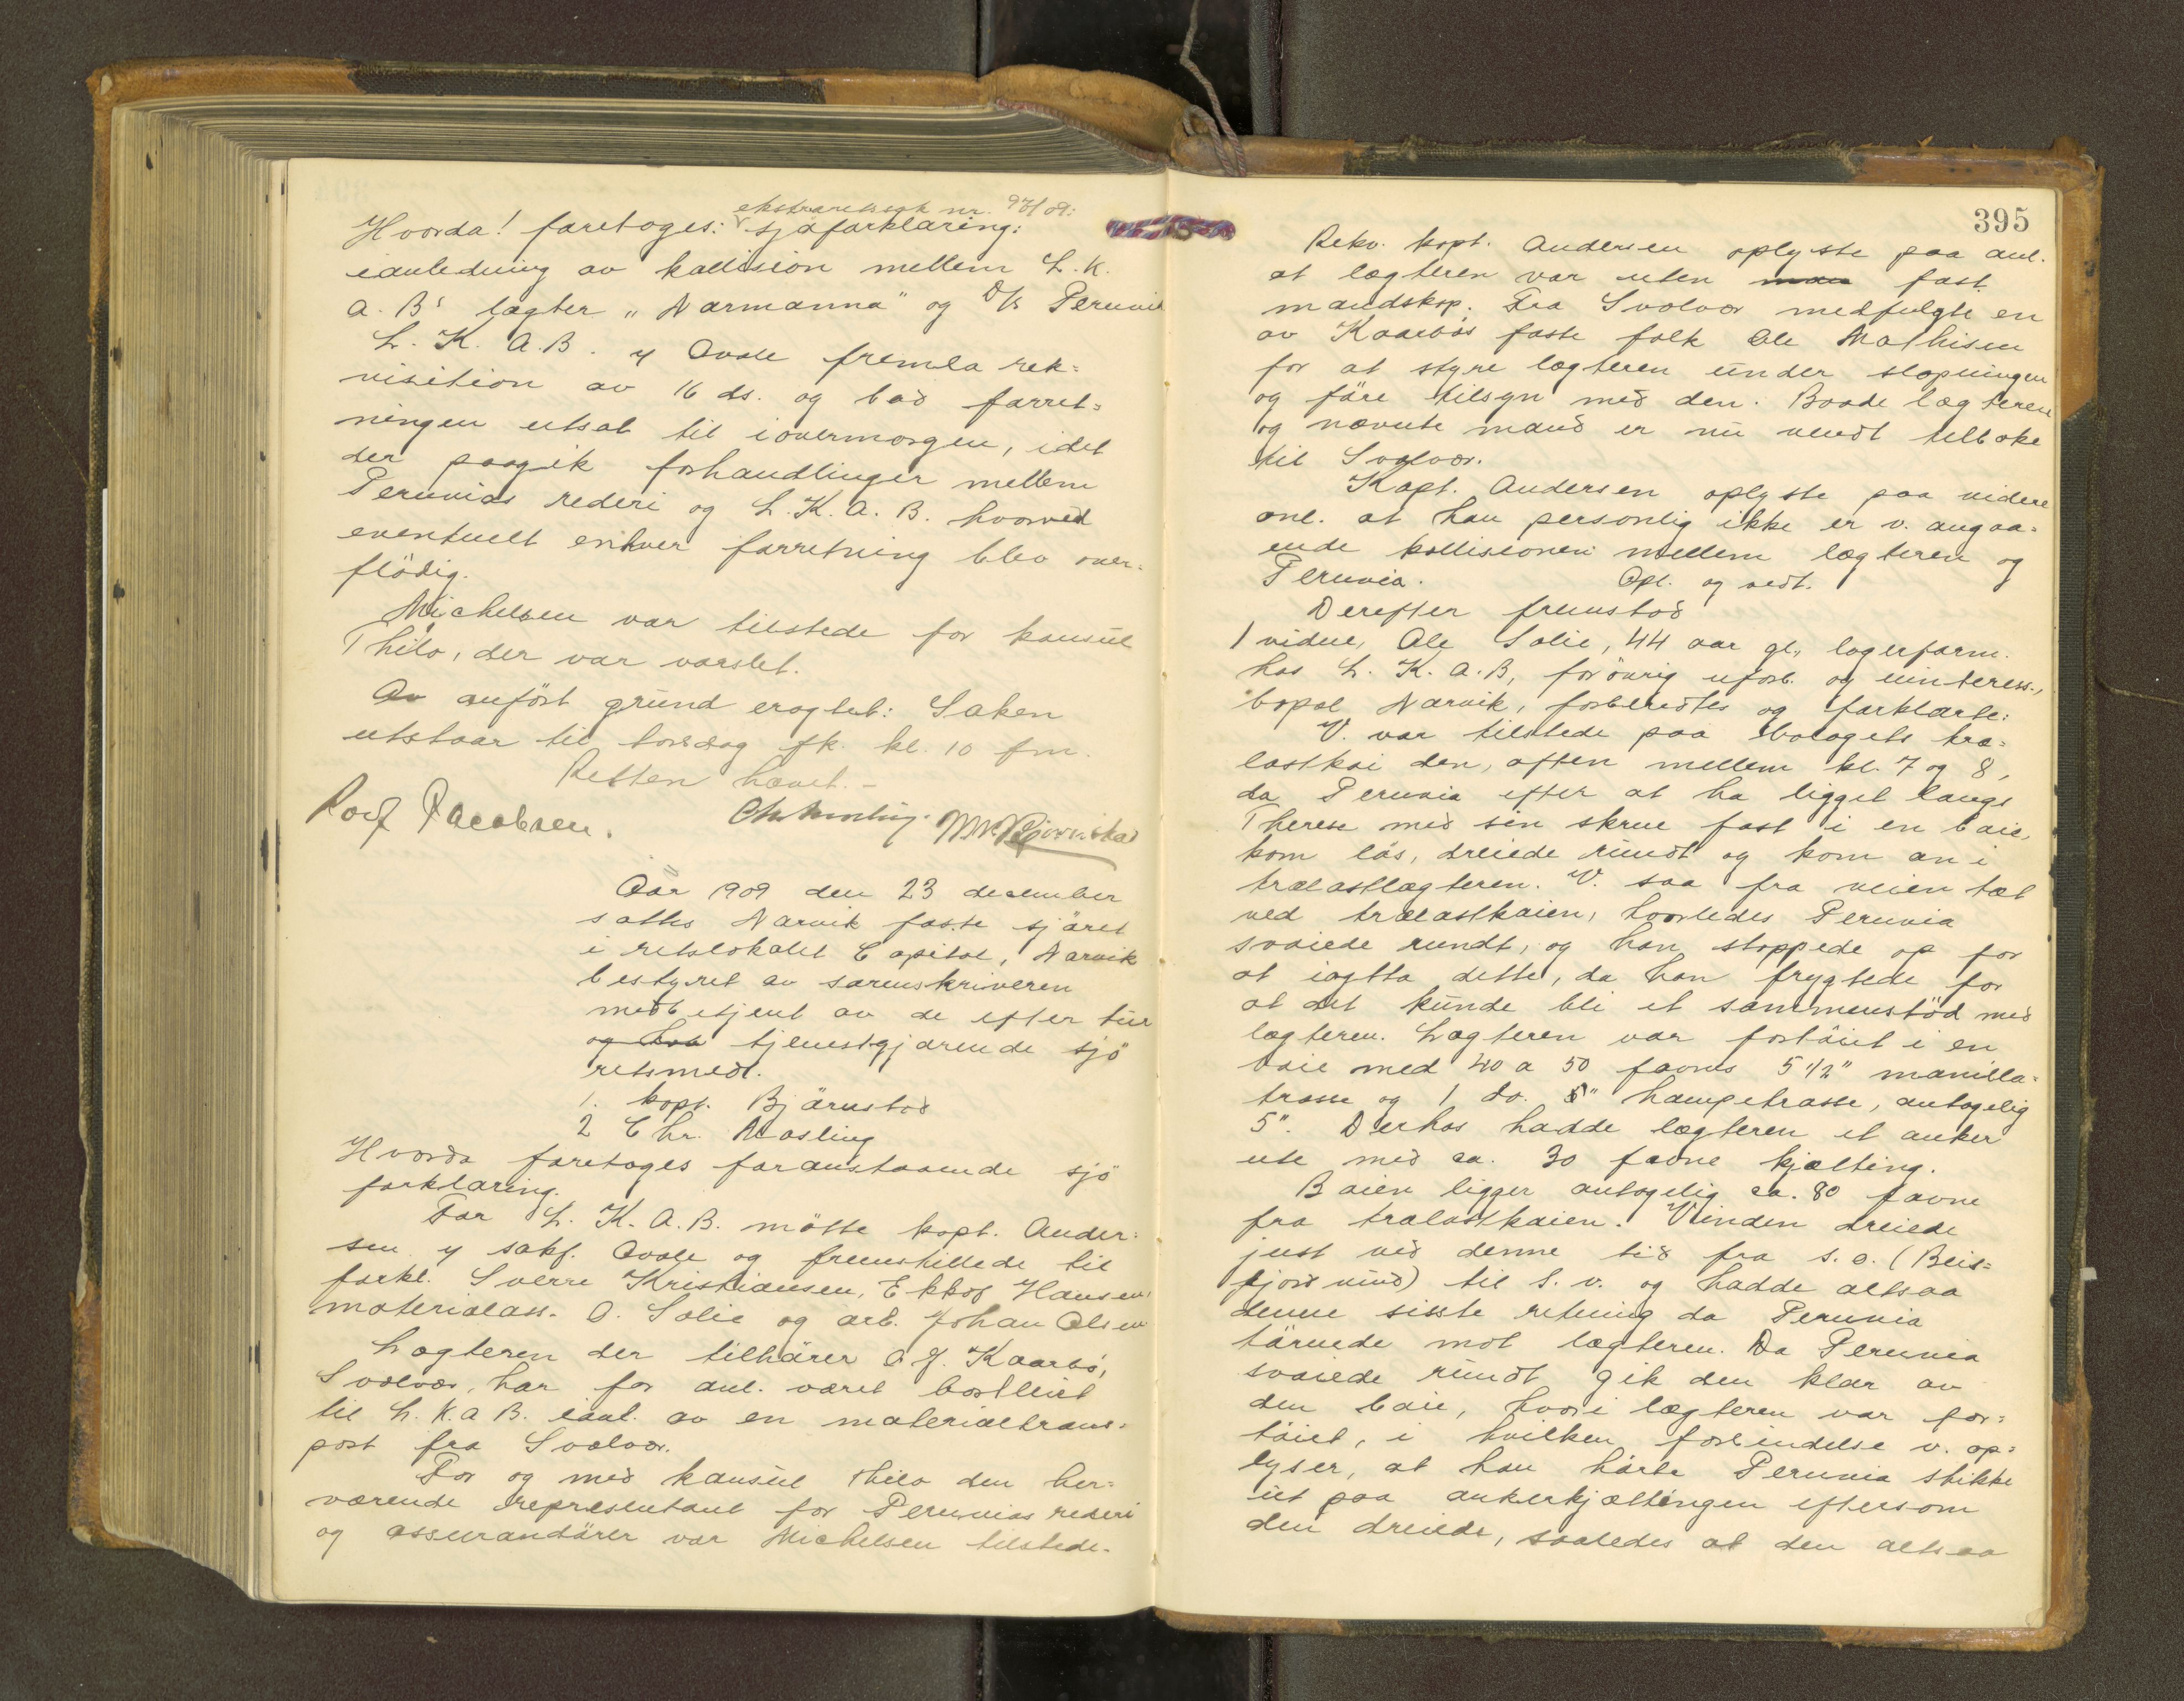 ekstraretssak nr. 97/09:
Hvorda! foretoges: sjøforklaring:
ianledning av kollision mellem L.K.
A.B's lægter "Normanna" og D/S Peruvia
L.K.A.B. v/ Qvale fremla rek=
visition av 16 ds. og bad forret=
ningen utsat til iovermorgen, idet
der paagik forhandlinger mellem
Peruvias rederi og L.K.A.B. hvorved
eventuelt enhver forretning blev over=
flödig.
Michelsen var tilstede for konsul
Thilo, der var varslet.
Av anfört grund eragtet: Saken
utstaar til torsdag fk. kl. 10 fm.
Retten hævet.-
Rolf Jacobsen. Chr Mosling. Bjørnstad
Aar 1909 den 23 december
sattes Narvik faste sjöret
i retslokalet Capitol, Narvik
bestyret av sorenskriveren
medbetjent av de efter tur
og tjenestgjörende sjö
retsmedl.
1. kapt. Bjørnstad
2 Chr. Mosling
Hvorda foretoges foranstaaende sjö
forklaring.
For L.K.A.B. mötte kapt. Ander=
sen v/ sakf. Qvale og fremstillede til
forkl. Sverre Kristiansen, Hansen,
materialass. O. Solie og arb. Johan Olsen
Lægteren der tilhörer O.J. Kaarbö,
Svolvær, har for anl. været bortleiet
til L.K.A.B. ianl. av en materialtrans=
port fra Svolvær.
For og med konsul Thilo den her=
værende representant for Peruvias rederi
og assurandörer var Michelsen tilstede.
395
Rekv. kapt. Andersen oplyste paa anl.
at lægteren var uten man fast
mandskap. Fra Svolvær medfulgte en
av Kaarbös faste folk Ole Mathisen
for at styre lægteren under slæpningen
og före tilsyn med den. Baade lægteren
og nævnte mand er nu vendt tilbake
til Svolvær.
Kapt. Andersen oplyste paa videre
anl. at han personlig ikke er v. angaa=
ende kollisionen mellem lægteren og
Peruvia. Opl. og vedt.
Derefter fremstod
1 vidne, Ole Solie, 44 aar gl., lagerform.
hos L.K.A.B, forövrig uforb. og uinteress.,
bopæl Narvik, forberedtes og forklarte:
V. var tilstede paa bolagets træ=
lastkai den, aften mellem kl. 7 og 8,
da Peruvia efter at ha ligget langs
Therese med sin skrue fast i en baie,
kom lös, dreiede rundt og kom an i
trælastlægteren. V. saa fra veien tæt
ved trælastkaien, hvorledes Peruvia
svaiede rundt, og han stoppede op for
at iagtta dette, da han frygtede for
at det kunde bli et sammenstöd med
lægteren. Lægteren var fortöiet i en
baie med 40 a 50 favnes 5 1/2" manilla=
trosse og 1 do. hampetrosse, antagelig
5". Derhos hadde lægteren et anker
ute med ca. 30 favne kjætting.
Baien ligger antagelig ca. 80 favne
fra trælastkaien. Vinden dreiede
just ved denne tid fra s.o. (Beis=
fjordvind) til s.v. og hadde altsaa
denne sisste retning da Peruvia
törnede mot lægteren. Da Peruvia
svaiede rundt gik den klar av
den baie, hvori lægteren var for=
töiet, i hvilken forbindelse v. op=
lyser, at han hörte Peruvia stikke
ut paa ankerkjættingen eftersom
den dreiede, saaledes at den altsaa